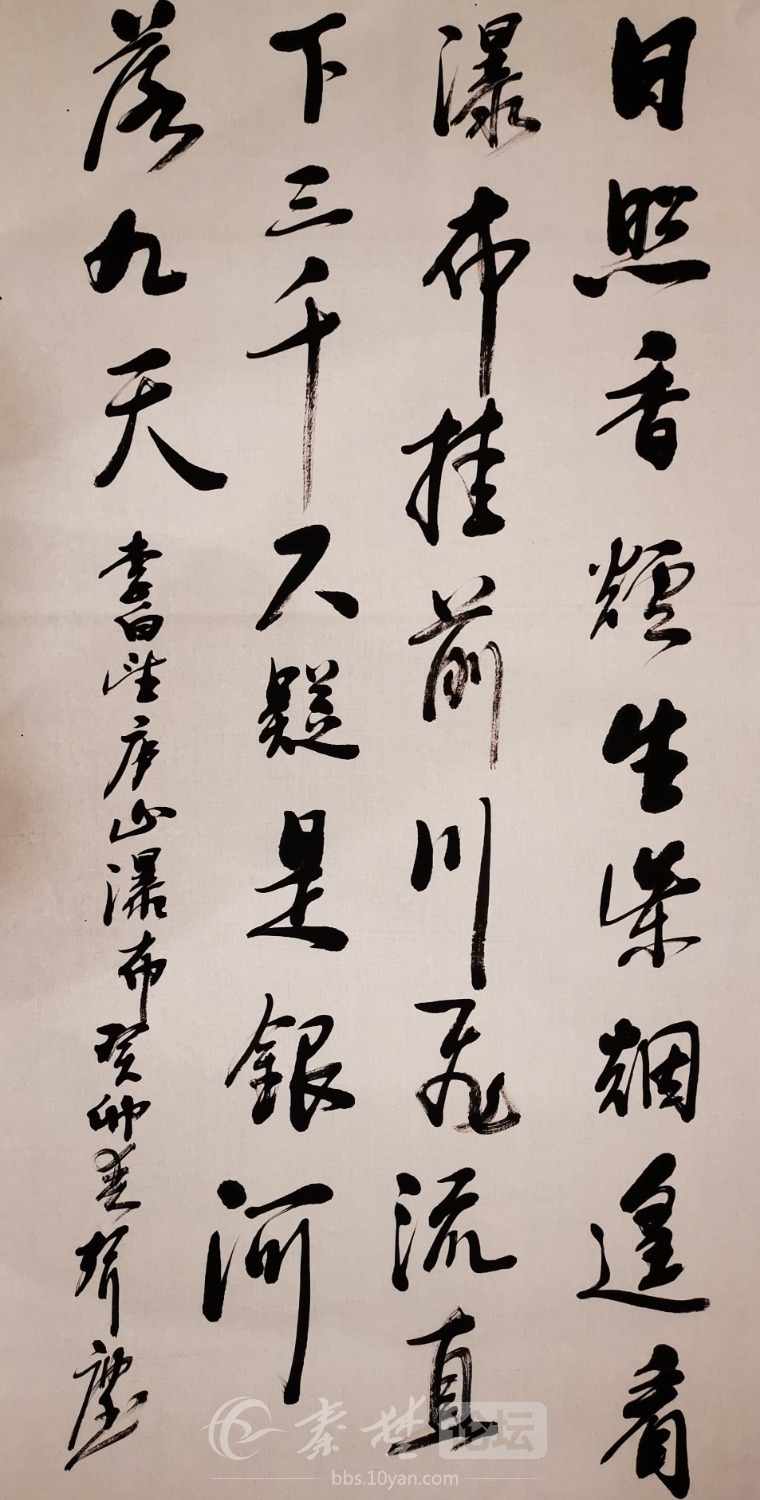 日照香爐生紫烟遥看
瀑布挂前川飛流直
下三千尺疑是銀河
落九天
李白望庐山瀑布癸卯
秦楚论坛
bbs.10yan.com